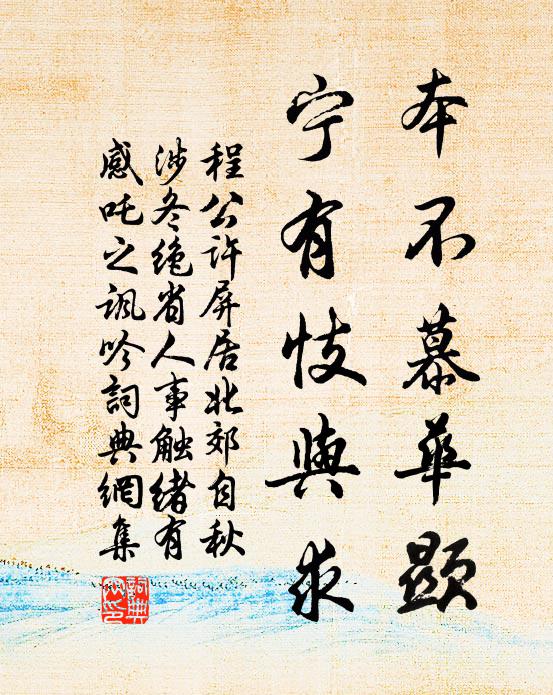 本不慕华显
宁有忮与求
程公许屏居北郊自秋
涉冬绝省人事触绪有
感吒之讽吟词典网集